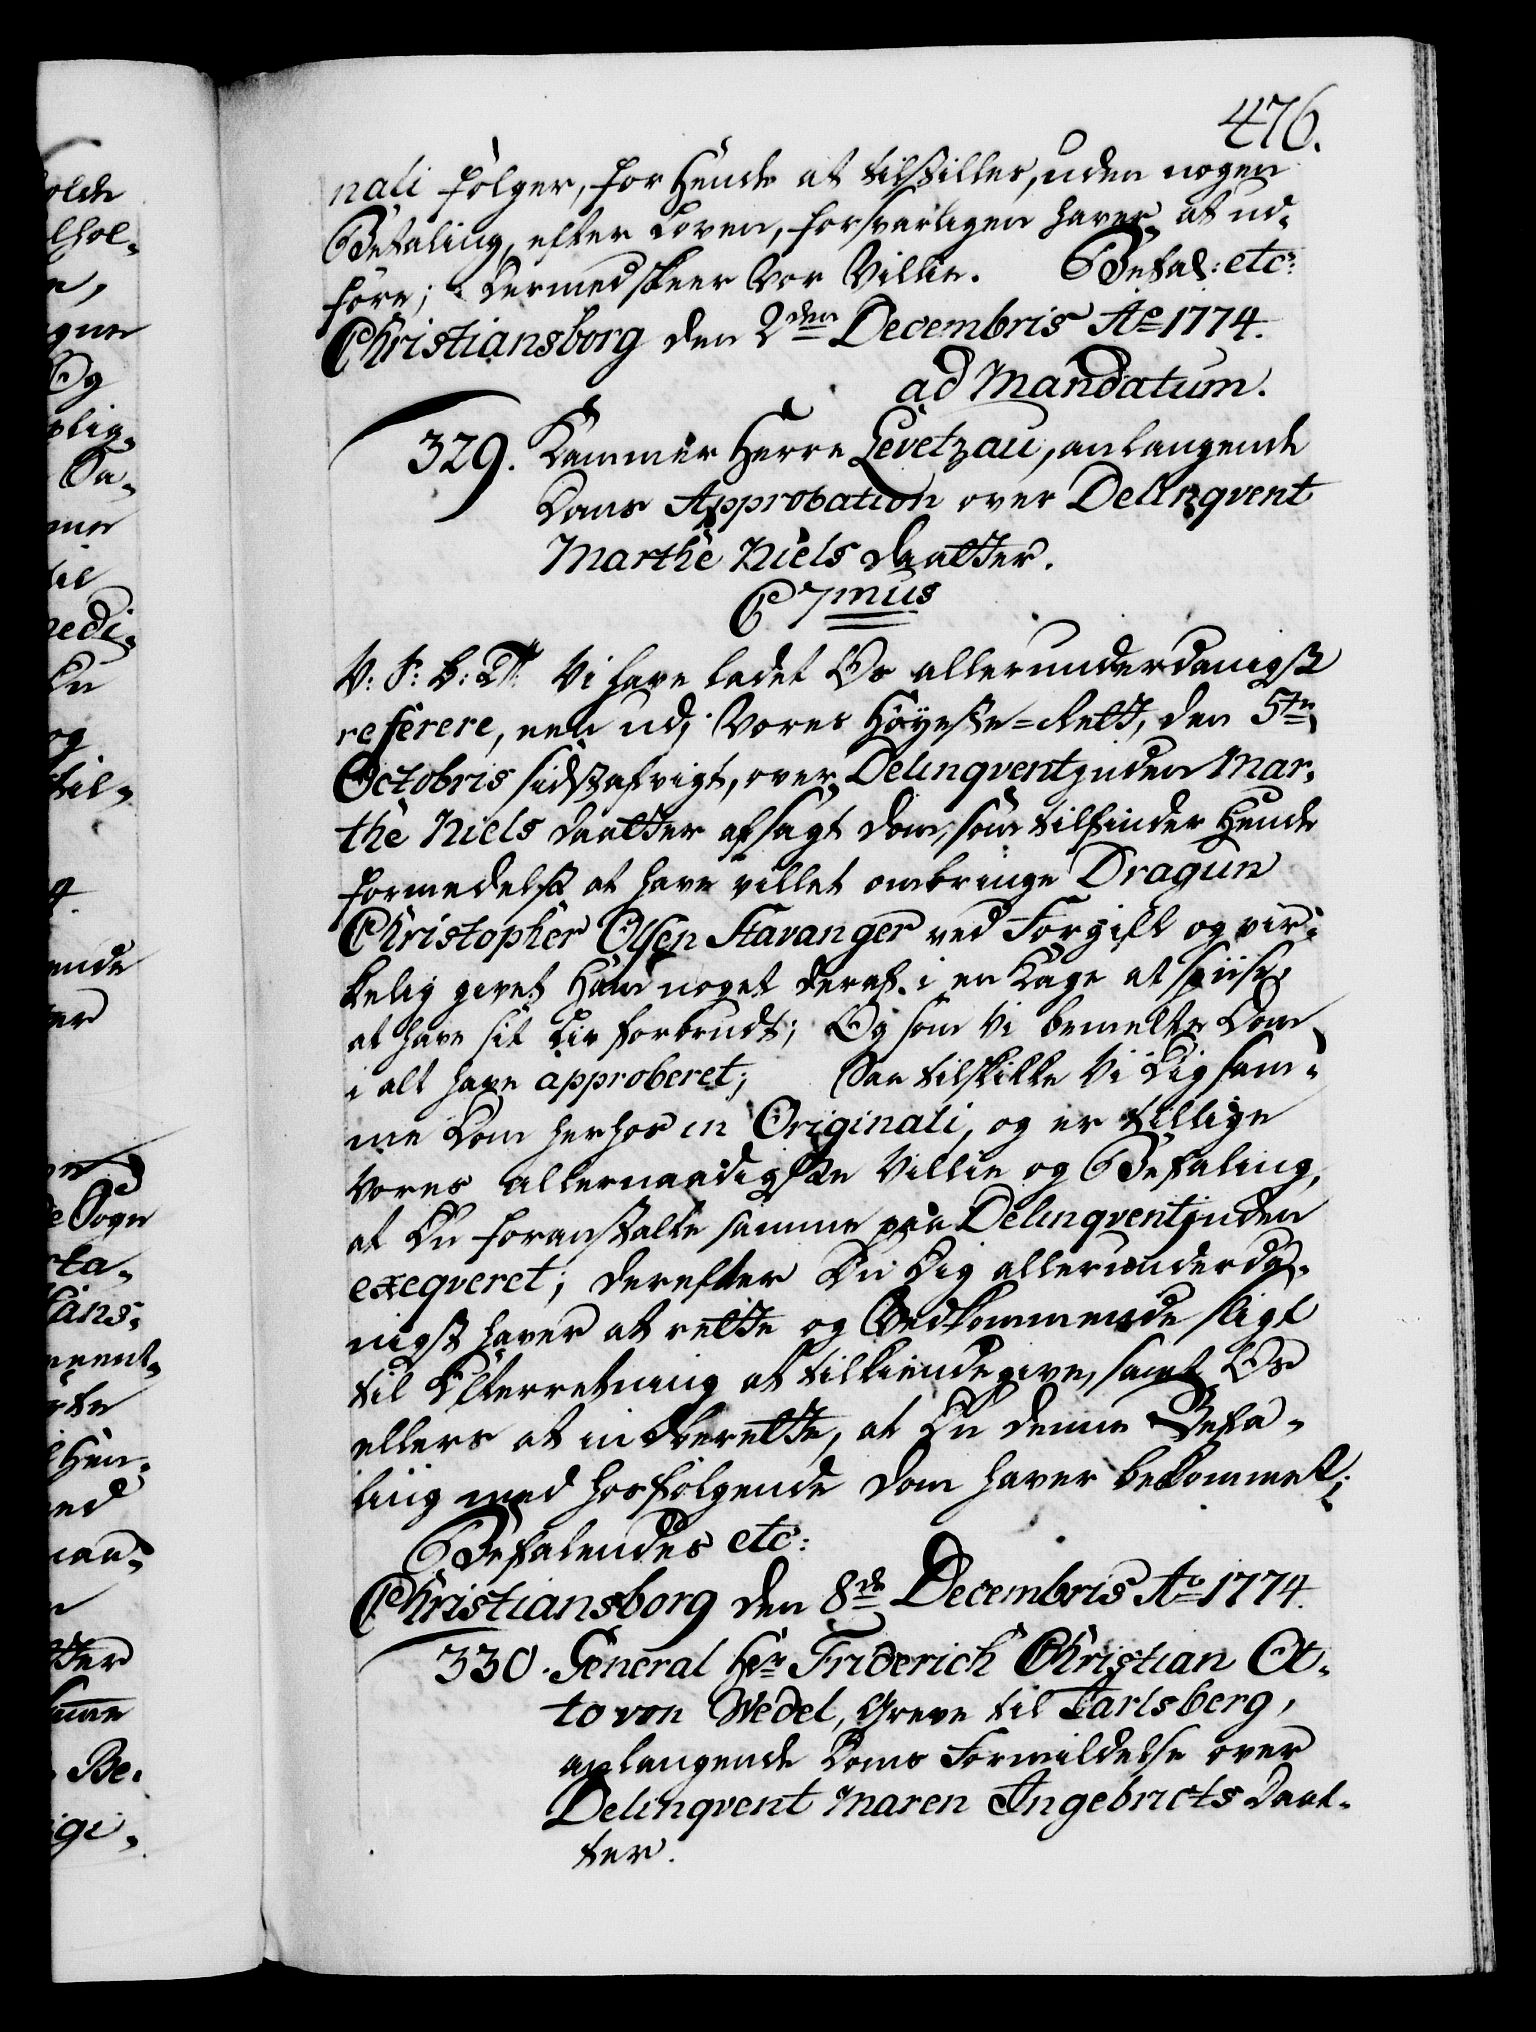 476.
nali følger, for Hende at tilstiller, uden nogen
Befaling, efter Loven, forsvarligen haver at ud-
føre; Dermed skeer Vor Villie. Befal: etc:
Christiansborg den 2den Decembris Ao 1774.
ad Mandatum.
329. Kammer Herre Levetzau, anlangende
Doms Approbation over Delinqvent
Marthe Niels Daatter.
C 7mus
V: S: B: T: Vi have ladet Os allerunderdanigst
referere, een udi Vores Høyeste-Rett, den 5te
Octobris sidstafvigt, over Delinqventinden Mar-
the Niels Daatter afsagt Dom, som tilfinder Hende
formedelst at have villet ombringe Dragun
Christopher Olsen Stavanger ved Forgift og vir-
kelig givet Ham noget deraf i en Kage at spiise,
at have sit Liv forbrudt; Og som Vi bemelte Dom
i alt have approberet; Saa tilskikke Vi Dig sam-
me Dom herhos in Originali, og er tillige
Vores allernaadigste Villie og Befaling,
at Du foranstalte samme paa Delinqventinden
exeqveret; derefter Du Dig allerunderda-
nigst haver at rette og Vedkommende sligt
til Efterretning at tilkiendegive, samt Os
ellers at indberette, at Du denne Befa-
ling med hosfølgende Dom haver bekommet;
Befalendes etc:
Christiansborg den 8de Decembris Ao 1774.
330. General Hr Friderich Christian Ot-
to von Wedel, Greve til Jarlsberg,
anlangende Doms Formildelse over
Delinqvent Maren Ingebricts Daat-
ter.